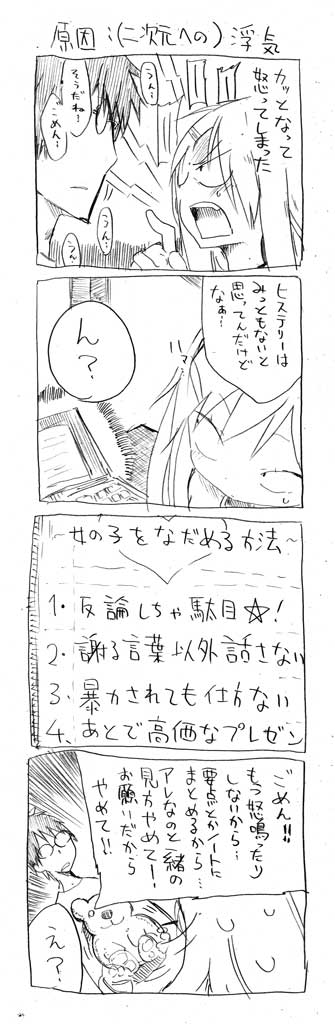 原因:(二次元への)浮気
カッとなって
怒ってしまった
うん…
そうだね…
ごめん…
うん…
うん…
ヒステリーは
みっともないと
思ってんだけど
なぁ…
ん？
～女の子をなだめる方法～
1. 反論しちゃ駄目☆!
2. 謝る言葉以外話さない
3. 暴かされても仕方ない
4. あとで高価なプレゼン
ごめん!!
もう怒鳴ったり
しないから…
要点とかノートに
まとめるから…
アレなのと一緒の
見方やめてー!
お願いだから
やめて!!
え？